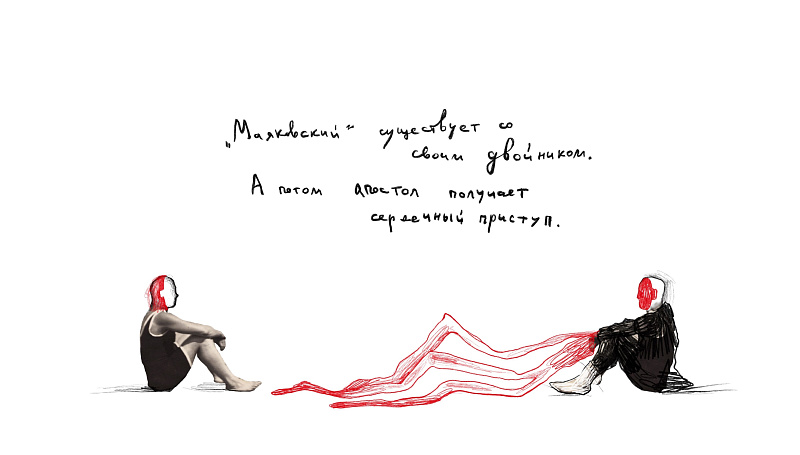 „Маяковский“ существует со
своим двойником.
А потом апостол получает
сердечный приступ.